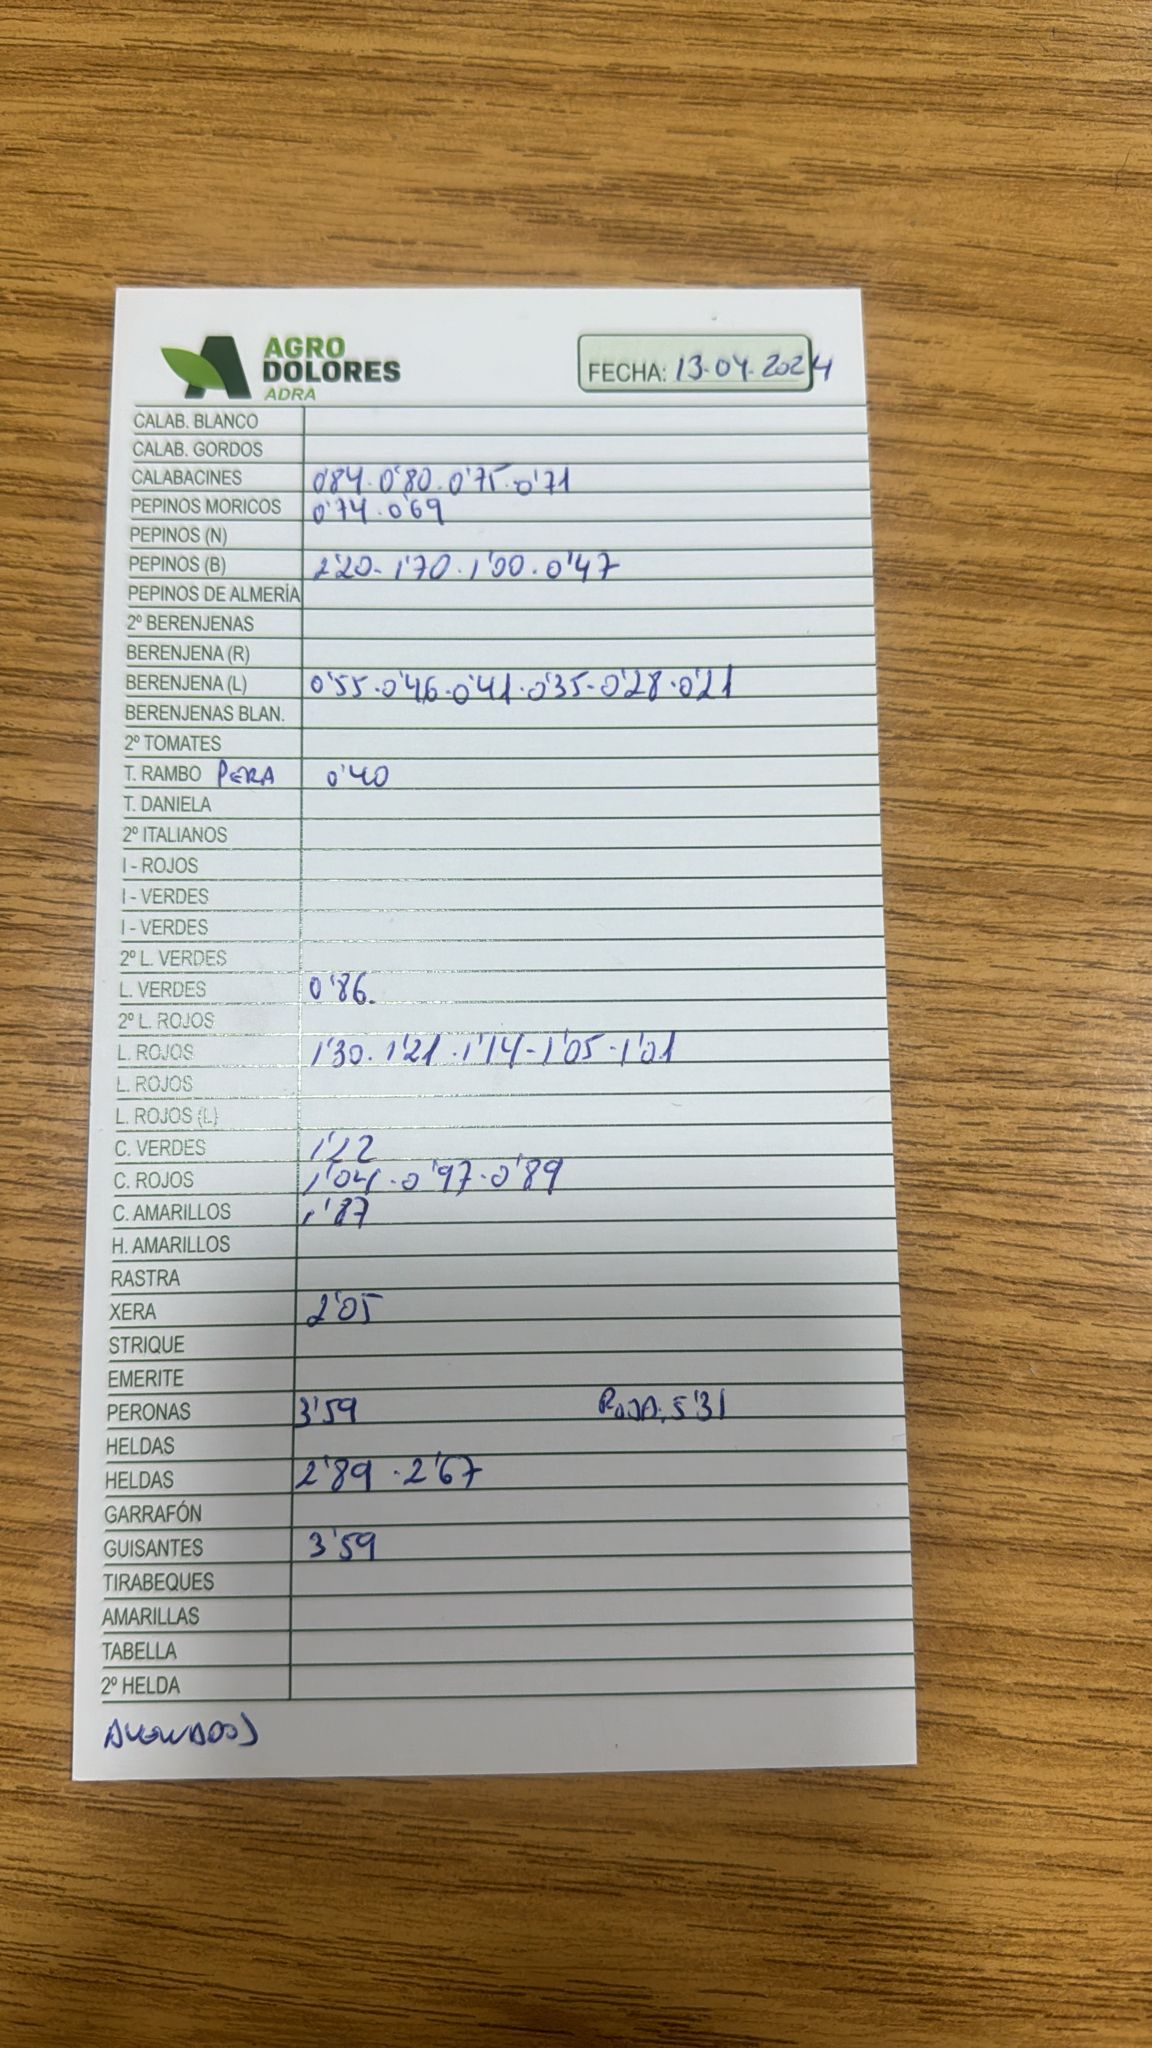 AGRO
DOLORES
ADRA
FECHA: 13.04.2024
CALAB. BLANCO
CALAB. GORDOS
CALABACINES 0'84.0'80.0'75.0'71
PEPINOS MORICOS 0'74.0'69
PEPINOS (N)
PEPINOS (B) 2'20-1'70.1'00.0'47
PEPINOS DE ALMERÍA
2º BERENJENAS
BERENJENA (R)
BERENJENA (L) 0'55.0'46.0'41.0'35-0'28.0'21
BERENJENAS BLAN.
2º TOMATES
T. RAMBO PERA 0'40
T. DANIELA
2º ITALIANOS
I - ROJOS
I - VERDES
I - VERDES
2º L. VERDES
L. VERDES 0'86.
2º L. ROJOS
L. ROJOS 1'30.1'21.1'14-1'05.1'01
L. ROJOS
L. ROJOS (L)
C. VERDES 1'22
C. ROJOS 1'04.0'97.0'89
C. AMARILLOS 1'87
H. AMARILLOS
RASTRA
XERA 2'05
STRIQUE
EMERITE
PERONAS 3'59 ROJA. 5'31
HELDAS
HELDAS 2'89.2'67
GARRAFÓN
GUISANTES 3'59
TIRABEQUES
AMARILLAS
TABELLA
2º HELDA